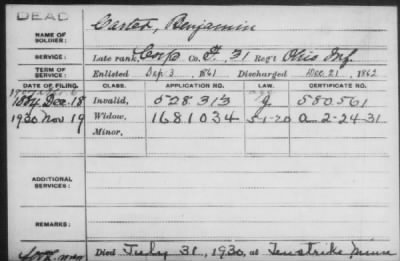 DEAD
NAME OF SOLDIER: Carter, Benjamin
SERVICE: Late rank, Corp Co. F. 31 Reg't Ohio Inf.
TERM OF SERVICE: Enlisted Sep. 3, 1861 Discharged Dec. 21, 1862
DATE OF FILING. CLASS. APPLICATION NO. LAW. CERTIFICATE NO.
1884 Dec. 18 Invalid, 528.313 g 580.561
1930 Nov 19 Widow, 1681034 5-1-20 a 2-24-31
Minor,
ADDITIONAL SERVICES:
REMARKS:
Died July 31, 1930, at Tenstrike Minn